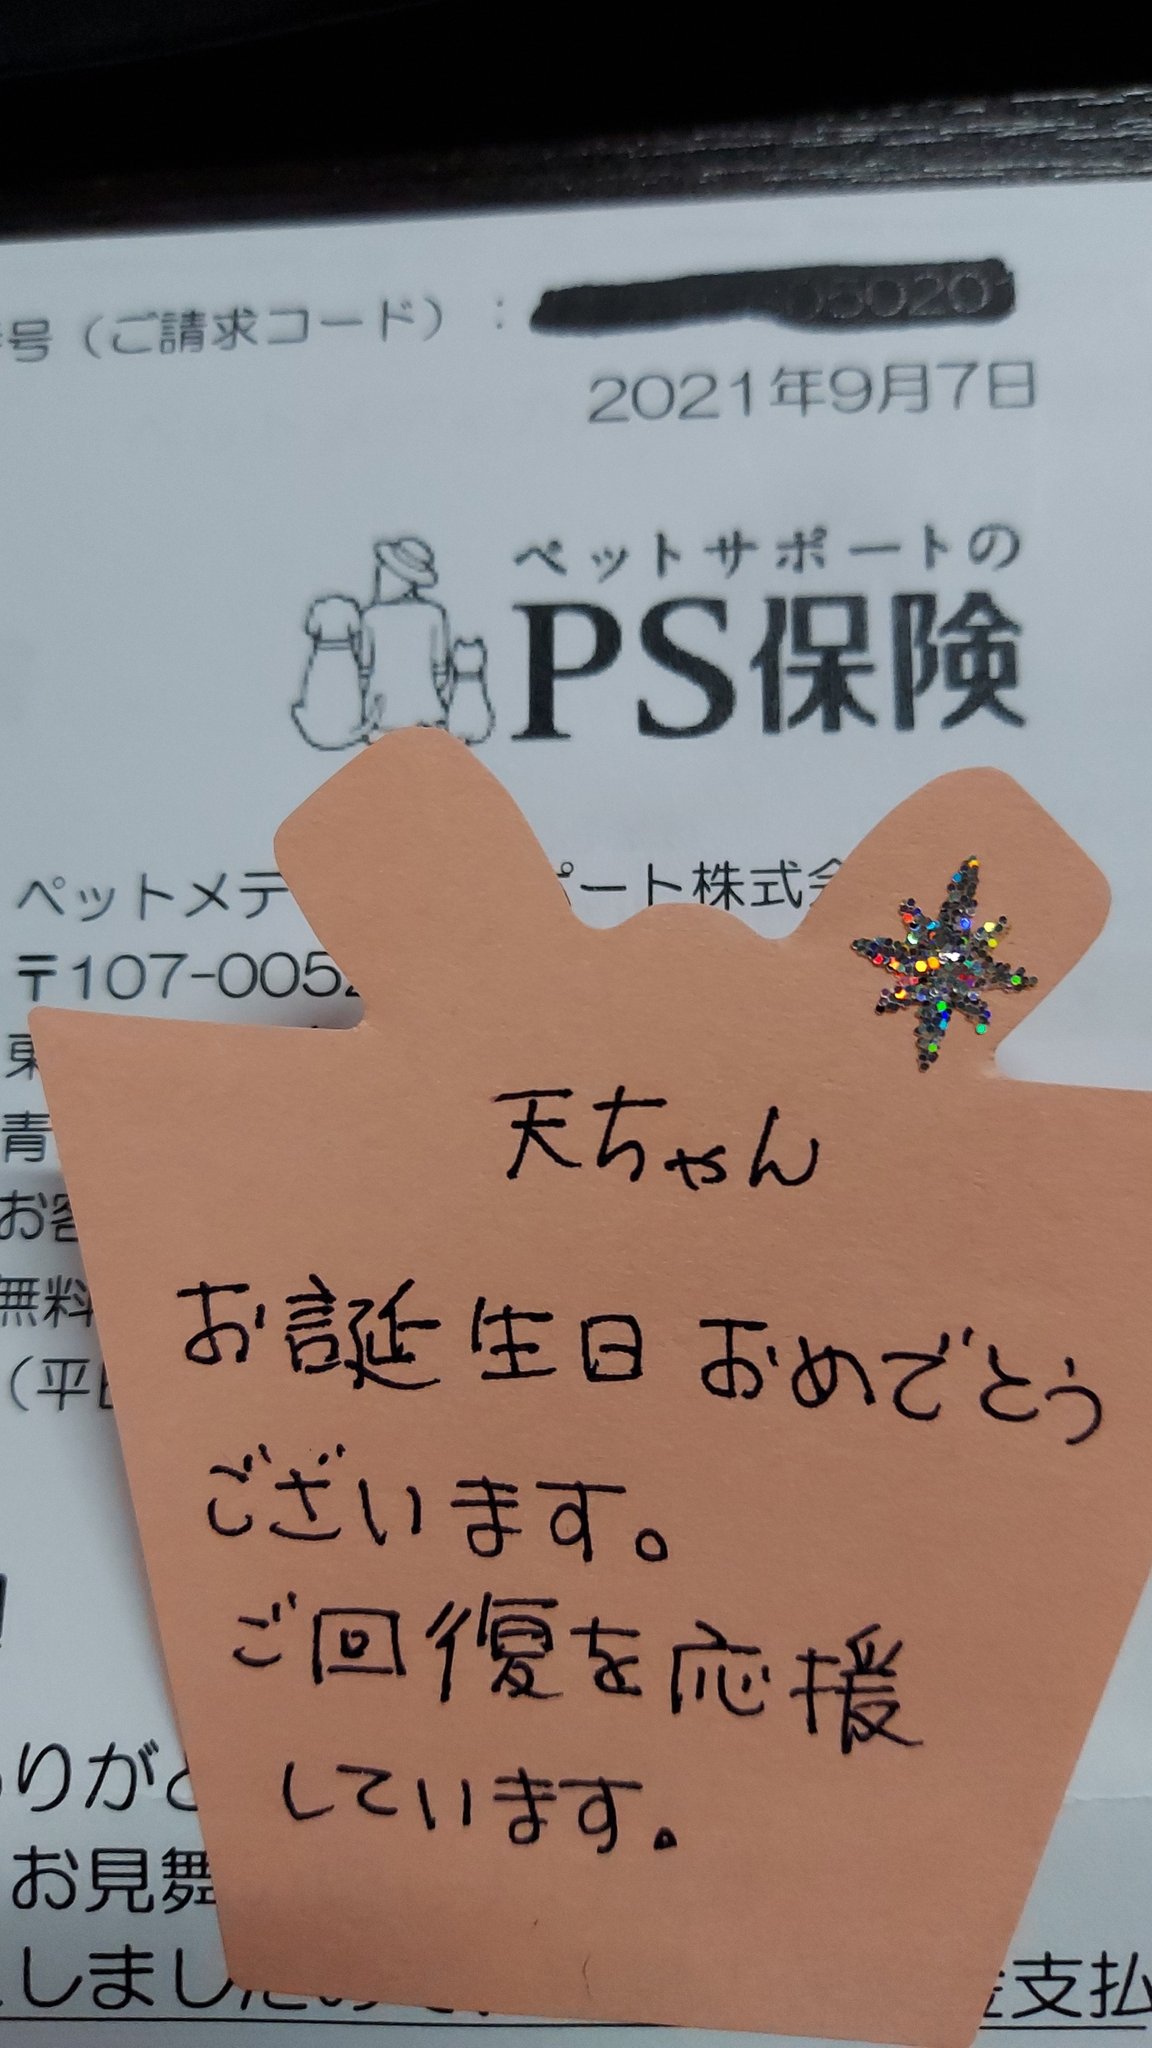 号（ご請求コード）：
2021年9月7日
ペットサポートの
PS保険
ペットメデ
ポート株式会
〒107-005
青
お客
無料
（平日
天ちゃん
お誕生日おめでとう
ございます。
ご回復を応援
しています。
りがと
お見舞
しまし
支払